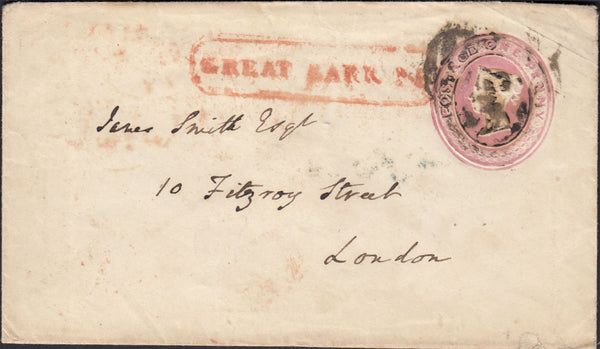 POSTAGE ONE PENNY
GREAT BARR
James Smith Esqr
10 Fitzroy Street
London